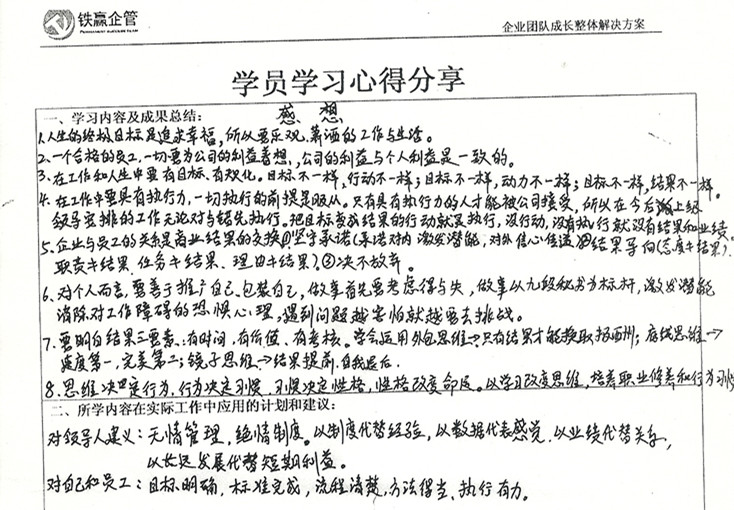 铁赢企管
企业团队成长整体解决方案
学员学习心得分享
一、学习内容及成果总结: 感 想
1.人生的终极目标是追求幸福,所以要乐观、萧洒的工作与生活。
2.一个合格的员工,一切要为公司的利益着想,公司的利益与个人利益是一致的。
3.在工作和人生中要有目标、有观化。目标不一样,行动不一样;目标不一样,动力不一样;目标不一样,结果不一样。
4.在工作中要具有执行力,一切执行的前提是服从。只有具有执行力的人才能被公司接受,所以在今后上级
领导安排的工作无论对与错先执行。把目标变成结果的行动就是执行,没行动,没有执行就没有结果和业绩
5.企业与员工的关系是商业结果的交换①坚守承诺(承诺对内激发潜能,对外信心传递)②结果导向(态度≠结果,
职责≠结果、任务≠结果、理由≠结果)。③决不放弃。
6.对个人而言,要善于推广自己、包装自己,做事首先要考虑得与失,做事以九段秘书为标杆,激发潜能
消除对工作障碍的恐惧心理,遇到问题越害怕就越要去挑战。
7.要明白结果三要素:有时间、有价值、有考核。学会运用外包思维→只有结果才能换取报酬;底线思维→
速度第一,完美第二;镜子思维→结果提前,自我退后.
8.思维决定行为,行为决定习惯,习惯决定性格,性格改变命运。以学习改变思维,培养职业修养和行为习惯
二、所学内容在实际工作中应用的计划和建议:
对领导人建义:无情管理,绝情制度。以制度代替经验,以数据代表感觉,以业绩代替关系,
以长远发展代替短期利益。
对自己和员工:目标明确,标准完成,流程清楚,方法得当、执行有力。